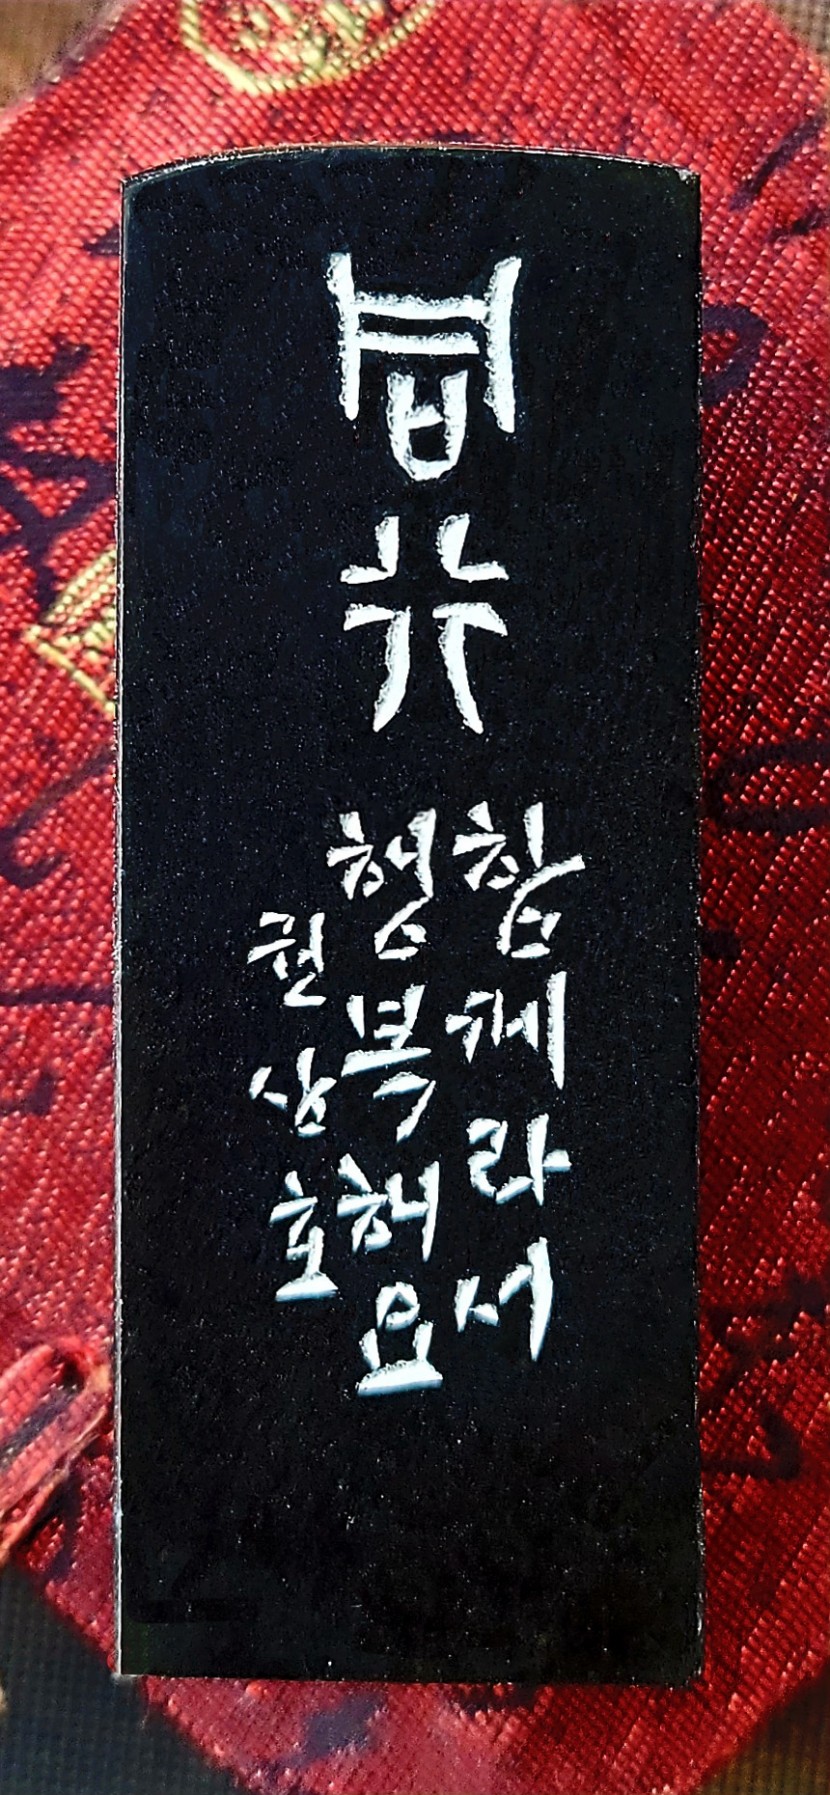 同行
함께라서
행복해요
권상호